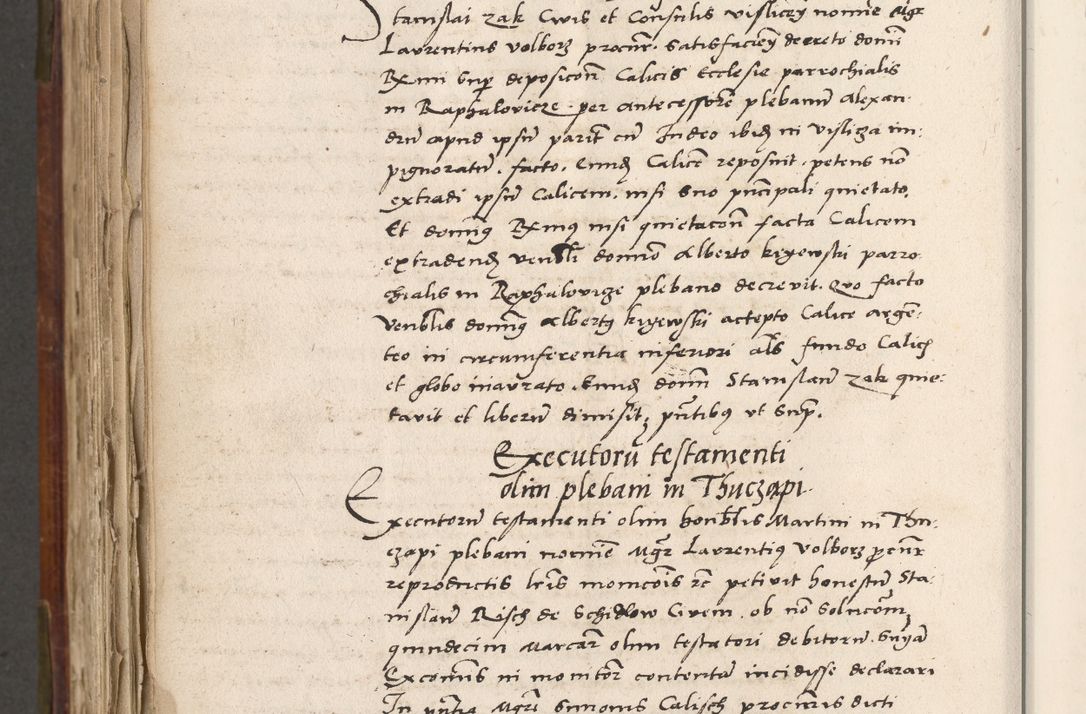 Stanislai zak Civis et Consulis visliczn nomine Mgr
Laurentius volborz procur. Satisfacien decreto domi
Rx̃mi Sup deposicon Calicis Ecclesie parrochialis
in Raphalovicze per antecessore plebanũ Alexan
drũ apud ipsũ parit cũ Judeo ibid in visliza im:
pignoratũ. facto. Eund Calice reposuit. petens nõ
extradi ipsũ Calicem. nisi Suo principali quietato.
Et doming Rx̃mus nisi quietacon facta Calicem
extradend venbli domino Alberto kryewski parro
chialis in Raphalovicze plebano decrevit. Quo facto
venblis doming Albertg kryewski accepto Calice argẽ:
teo in circumferentia inferiori als fundo Calicis
et globo inaurato. Eund domi Stanislaũ zak quie:
tavit et liberũ dimisit, pñtibus ut Sup.
Executorũ testamenti
olim plebani in Thuczapi
Executorũ testamenti olim honblis Martini in Thu:
czapi plebani nomine Mgr Laurentiq volborz procur
reproductis lris monicois rc petivit honestũ Sta:
nislaũ Risch de Schidlow Civem. ob nõ Solucoem
quindecim Marcar olim testatori debitorũ. Snyam
Excoicois in monitor contentã incidisse declarari
In pñtia Mgri Simonis Calisch procuris dicti